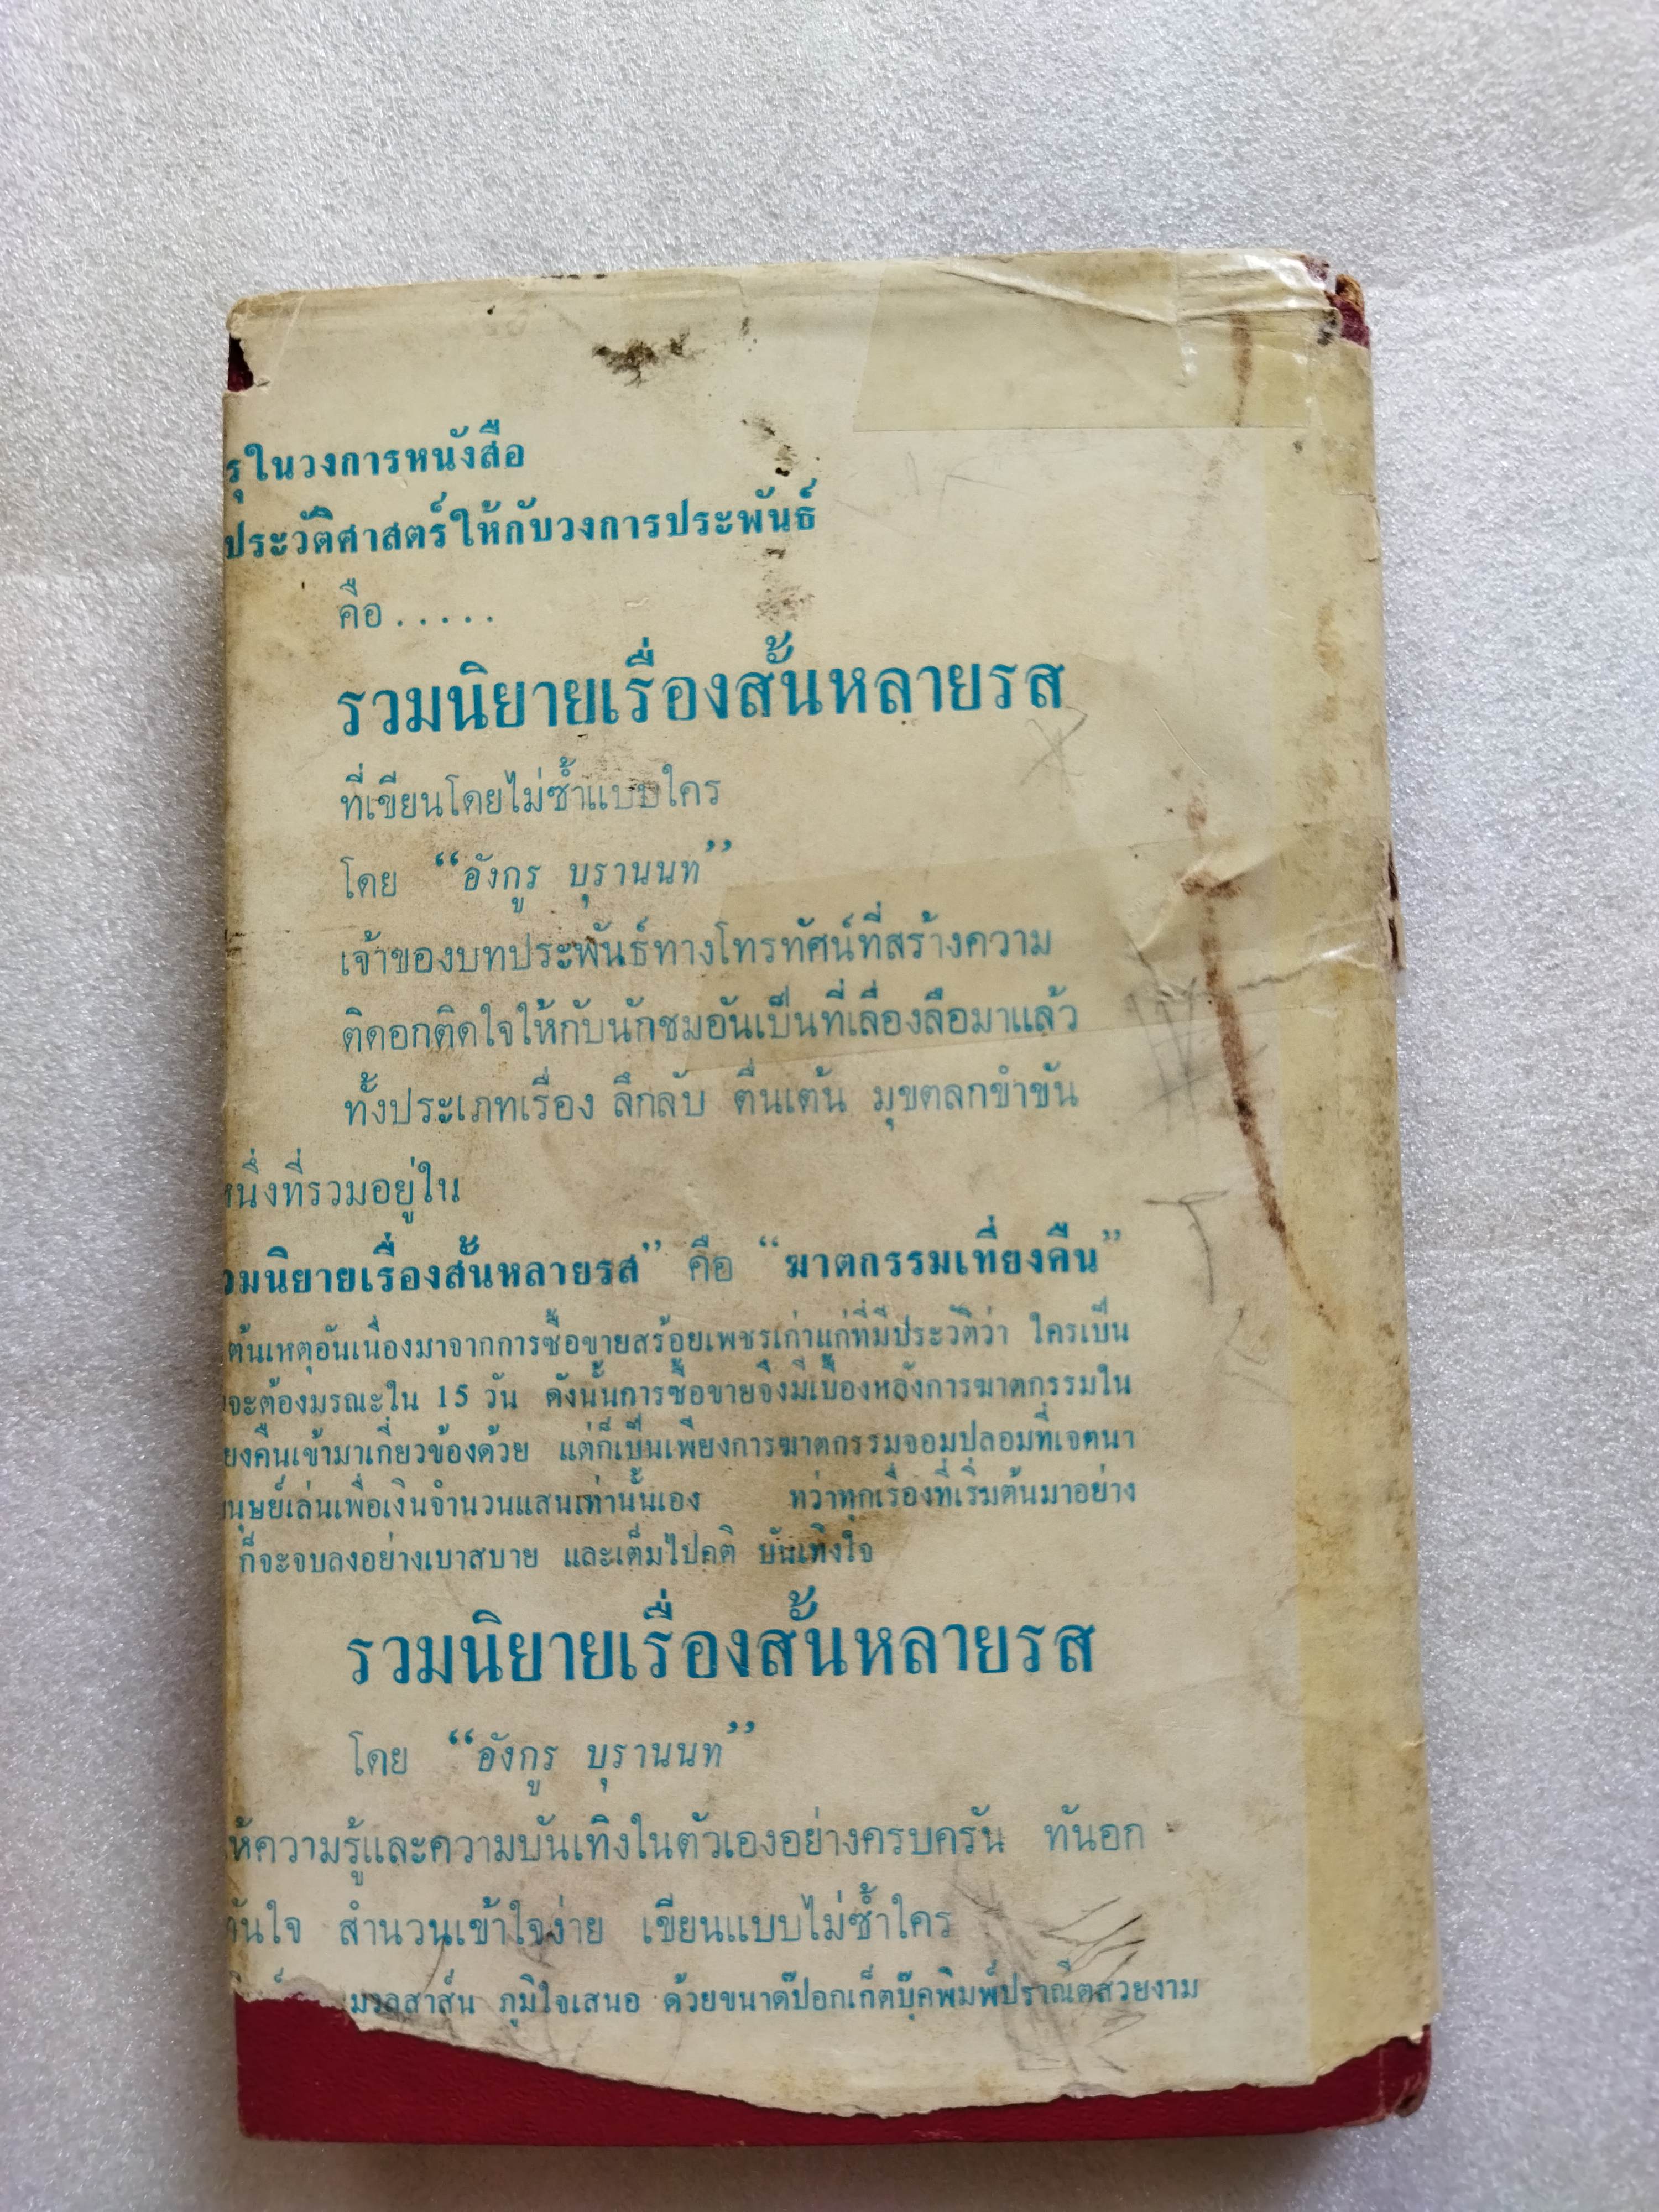 รุในวงการหนังสือ
ประวัติศาสตร์ให้กับวงการประพันธ์
คือ.....
รวมนิยายเรื่องสั้นหลายรส
ที่เขียนโดยไม่ซ้ำแบบใคร
โดย “อังกูร บุรานนท”
เจ้าของบทประพันธ์ทางโทรทัศน์ที่สร้างความ
ติดอกติดใจให้กับนักชมอันเป็นที่เลื่องลือมาแล้ว
ทั้งประเภทเรื่อง ลึกลับ ตื่นเต้น มุขตลกขำขัน
หนึ่งที่รวมอยู่ใน
วมนิยายเรื่องสั้นหลายรส” คือ “ฆาตกรรมเที่ยงคืน”
ต้นเหตุอันเนื่องมาจากการซื้อขายสร้อยเพชรเก่าแก่ที่มีประวัติว่า ใครเป็น
จะต้องมรณะใน 15 วัน ดังนั้นการซื้อขายจึงมีเบื้องหลังการฆาตกรรมใน
ยงคืนเข้ามาเกี่ยวข้องด้วย แต่ก็เป็นเพียงการฆาตกรรมจอมปลอมที่เจตนา
นุษย์เล่นเพื่อเงินจำนวนแสนเท่านั้นเอง ทว่าทุกเรื่องที่เริ่มต้นมาอย่าง
ก็จะจบลงอย่างเบาสบาย และเต็มไปคติ บันเทิงใจ
รวมนิยายเรื่องสั้นหลายรส
โดย “อังกูร บุรานนท”
ห้ความรู้และความบันเทิงในตัวเองอย่างครบครัน ทันอก
ทันใจ สำนวนเข้าใจง่าย เขียนแบบไม่ซ้ำใคร
มวลสาส์น ภูมิใจเสนอ ด้วยขนาดป๊อกเก็ตบุ๊คพิมพ์ปราณีตสวยงาม